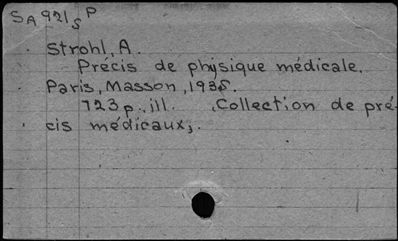 SA 921 S P
Strohl, A.
Précis de physique médicale.
Paris, Masson, 1935.
723 p., ill. (Collection de pré-
cis médicaux).